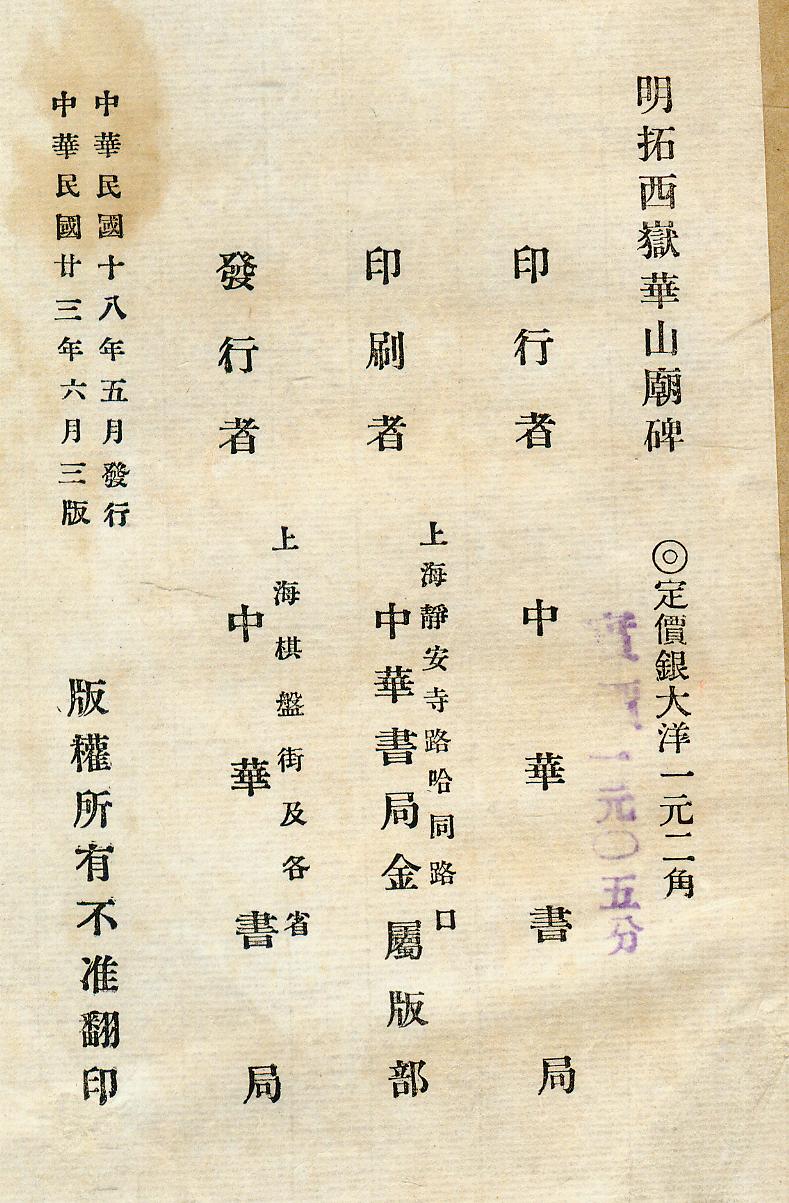 明拓西嶽華山廟碑
◎定價銀大洋一元二角
一元〇五分
印行者
中華書局
印刷者
上海靜安寺路哈同路口
中華書局金屬版部
發行者
上海棋盤街及各省
中華書局
中華民國十八年五月發行
中華民國廿三年六月三版
版權所有不准翻印